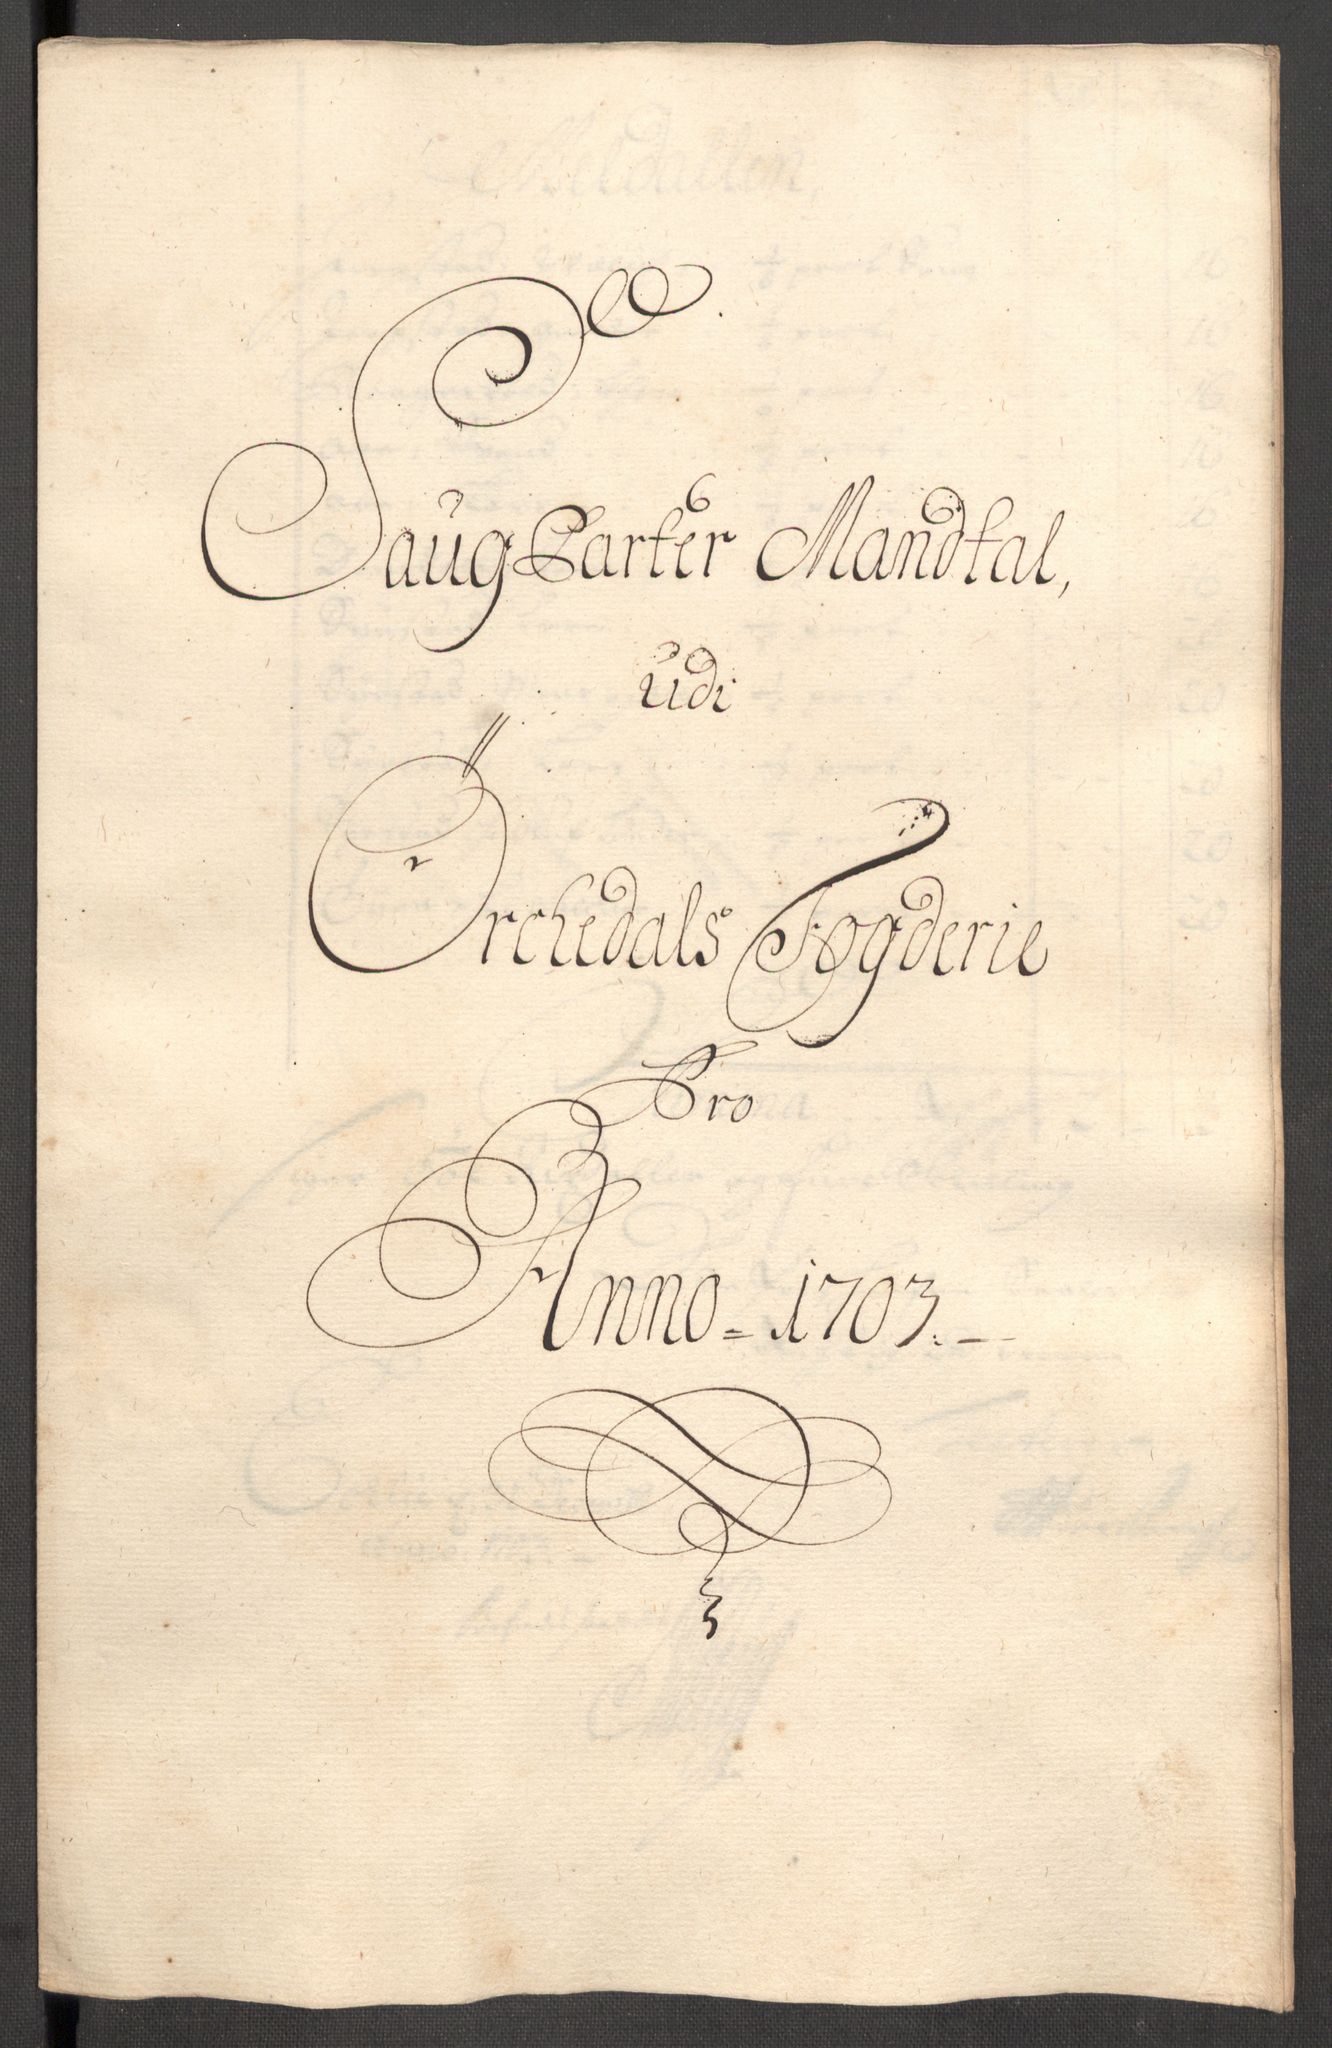 Saug Parter Mandtal,
udi
Orchedals Fogderie
Pro
Anno = 1703.